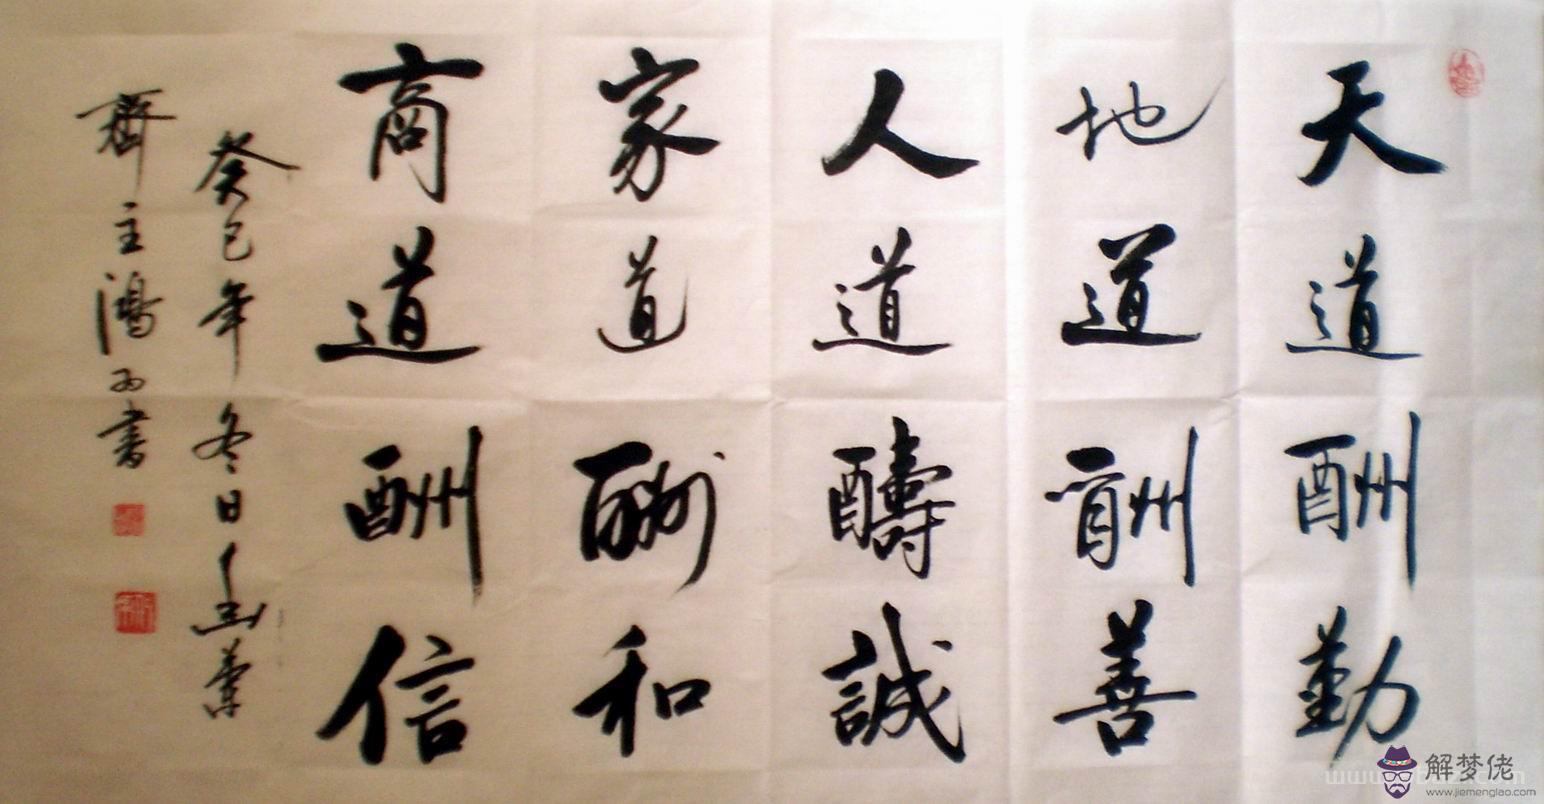 天道酬勤
地道酬善
人道醻誠
家道酬和
商道酬信
癸巳年冬日
齋主鴻書
解梦佬
www.jiemenglao.com